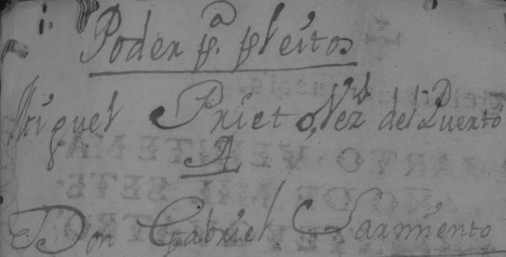 Poder pa. pleitos
Miguel Prieto, Vezo. del Puerto
A
Don Gabriel Sarmiento